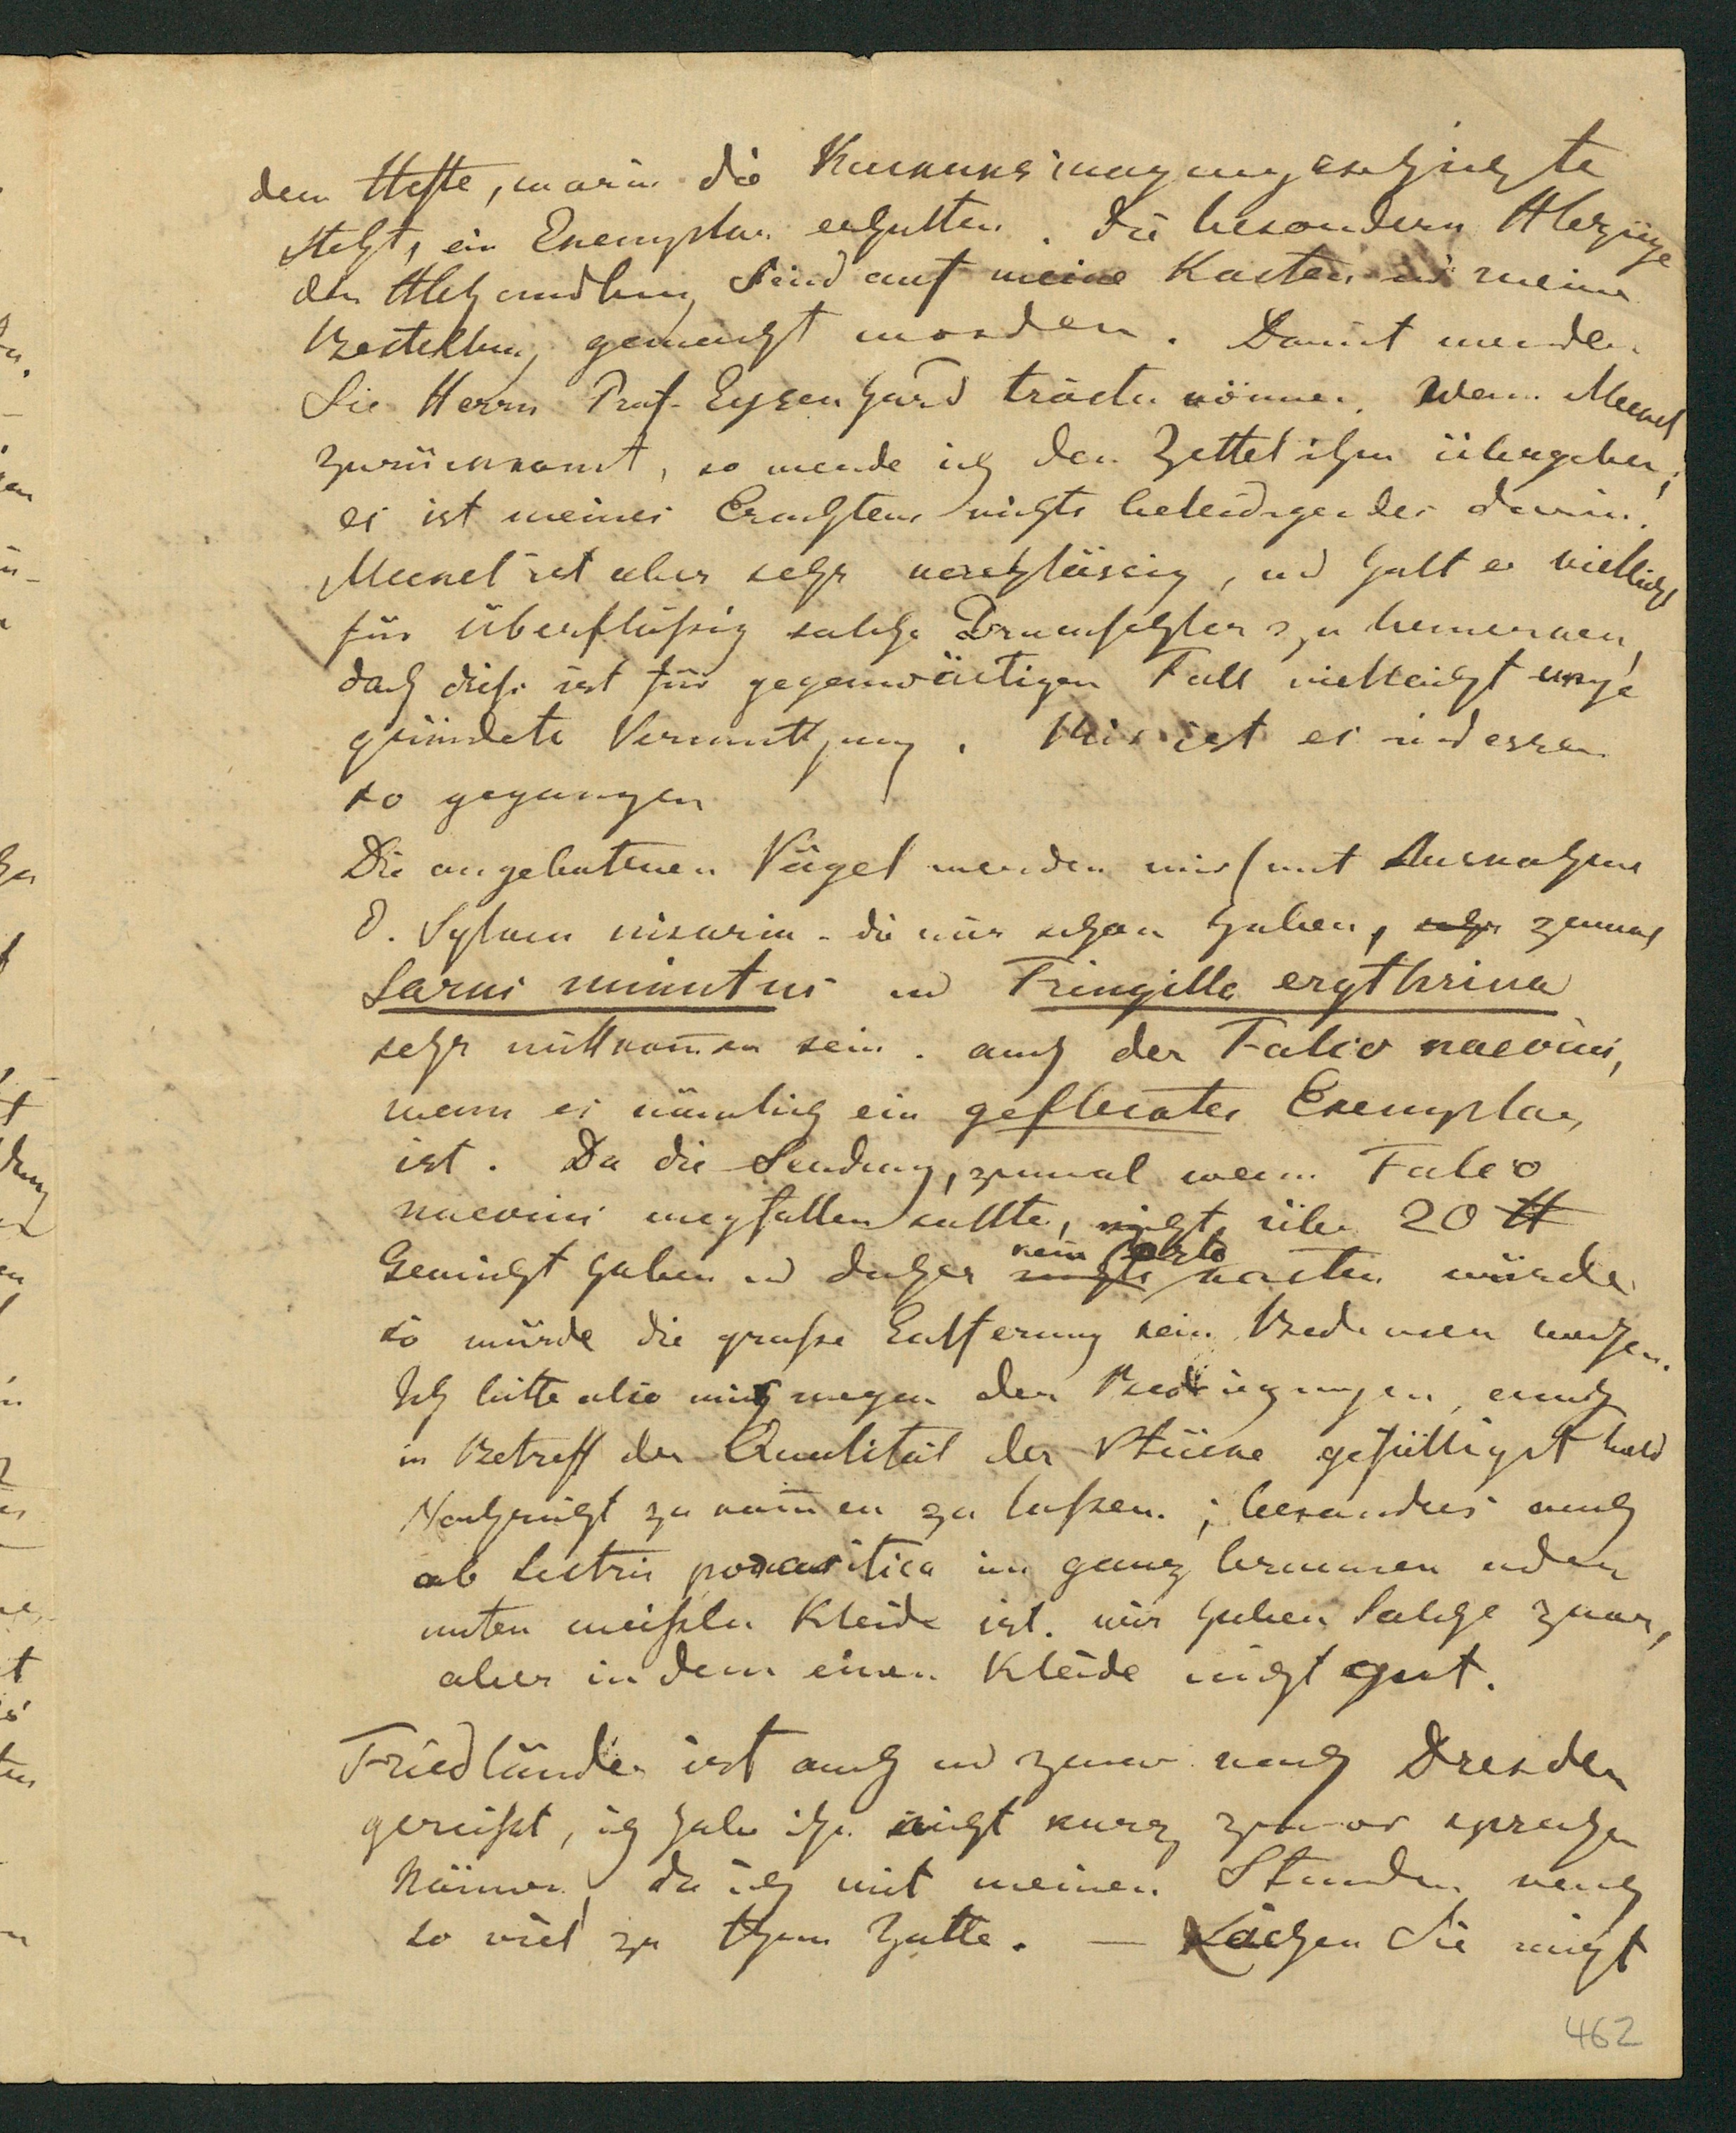 dem Hefte, worin die
steht, ein Exemplar erhalten. Die besondern Abzüge
der Abhandlung sind auf meine Kosten und meine
Bestellung gemacht worden. Damit werden
Sie Herrn Prof. Eysenhard trösten können. Wenn Meckel
zurückkomt, so werde ich den Zettel ihm übergeben;
es ist meines Erachtens nichts beleidigendes darin.
Meckel ist aber sehr nachläsig, und halt es vielleicht
für überflüßig solche Druckfehler zu bemerken,
doch dieß ist für gegenwärtigen Fall vielleicht unge
gründete Vermuthung. Mir ist es indessen
so gegangen
Die angebotenen Vögel werden mir (mit Ausnahme
d. Sylvia nisoria - die wir schon haben, sehr zumal
Larus minutus und Fringilla erythrina
sehr willkom̅en sein. auch der Falco naevius,
wenn es nämlich ein geflecktes Exemplar
ist. Da die Sendung, zumal wenn Falco
naevius wegfallen sollte, nicht über 20 ℔
Gewicht haben und daher nichts kein Porto kosten würde
so würde die große Entfernung kein Bedenken machen.
Ich bitte also mich wegen der Bedingungen, auch
in Betreff der Qualität der Stücke gefälligst bald
Nachricht zu kom̅en zu laßen.; besonders auch
ob Lestris parasitica im ganz braunen oder
unten weißen Kleide ist. wir haben solche zwar,
aber in dem einen Kleide nicht gut.
Friedländer ist auch und zwar nach Dresden
gereißt, ich habe ihn nicht kurz zuvor sprechen
können, da ich mit meinen Stunden noch
so viel zu thun hatte. — Lachen Sie nicht
462